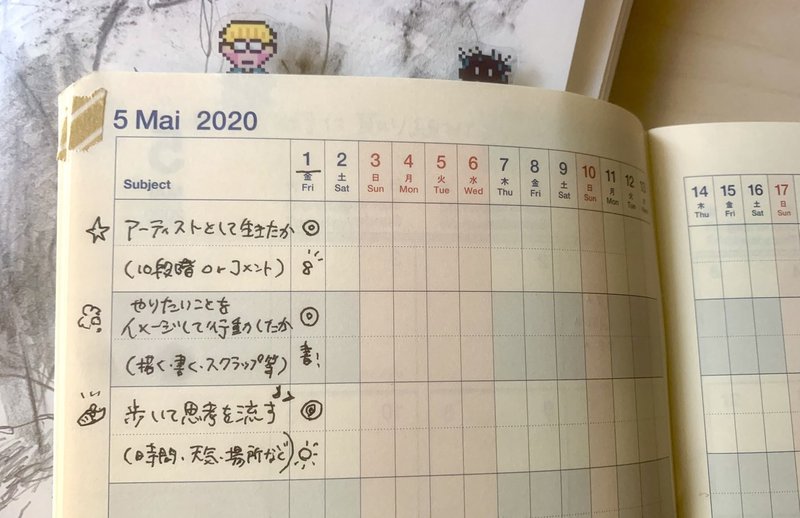 5 Mai 2020
Subject
1 2 3 4 5 6 7 8 9 10 11 12 13
金 土 日 月 火 水 木 金 土 日 月 火
Fri Sat Sun Mon Tue Wed Thu Fri Sat Sun Mon Tue Wed
14 15 16 17
木 金 土 日
Thu Fri Sat Sun
☆ アーティストとして生きたか ◎
(10段階 or コメント) 8
やりたいことを
イメージして行動したか ◎
(描く・書く・スクラップ等) 書!
歩いて思考を流す ◎
(時間・天気・場所など)